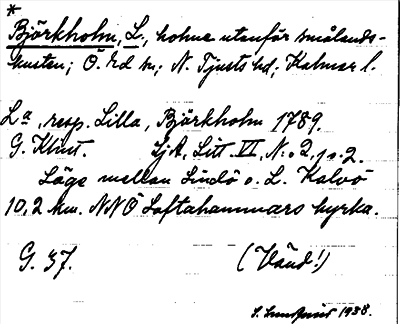 *
Björkholm, L., holme utanför smålands-
kusten; Ö. Ed sn; N. Tjusts hd; Kalmar l.
La, resp. Lilla, Björkholm 1789.
G. Klint. Sjk, Litt. VI, N:o 2, p. 2.
Läge mellan Lindö o. L. Kalvö
10,2 km. NNÖ Loftahammars kyrka.
G. 37. (Vänd!)
S. Lundquist 1938.